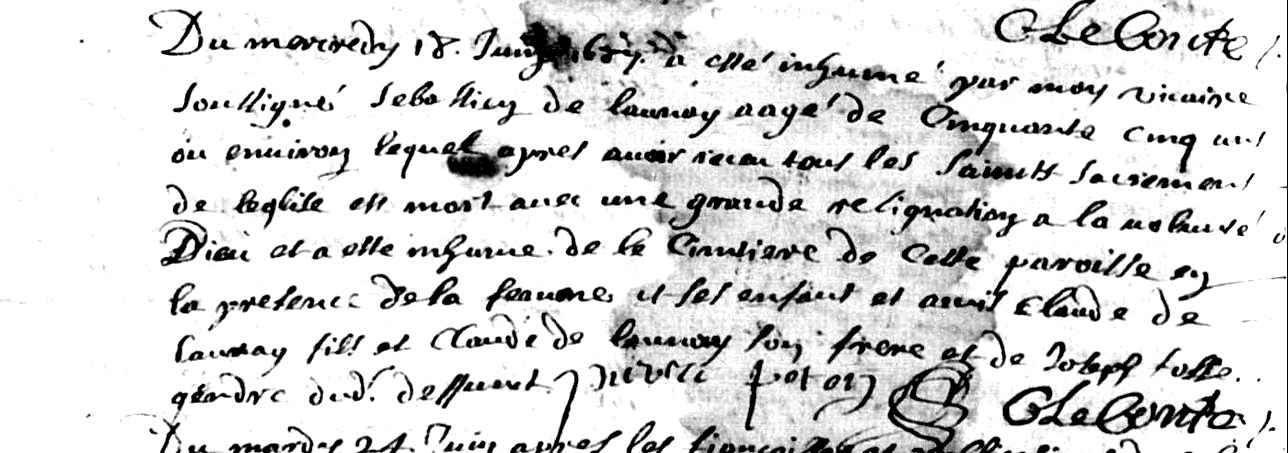 CLeConte
Du mercredy 18. Juin 167 a esté inhumé par moy vicaire
soussigné Sebastien de launay aagé de Cinquante cinq ans
ou environ lequel apres avoir receu tous les saints sacrement
de leglise est mort avec une grande resignation a la volonté d
Dieu et a este inhume. de le Cimtiere de Cette paroisse en
la presence de la femme et ses enfant et amis Claude de
launay fils et Claude de launay son frere et de Joseph fosse..
gendre dud. deffunct
CLeConte
Du mardy 24 Juin apres les fiançailles et